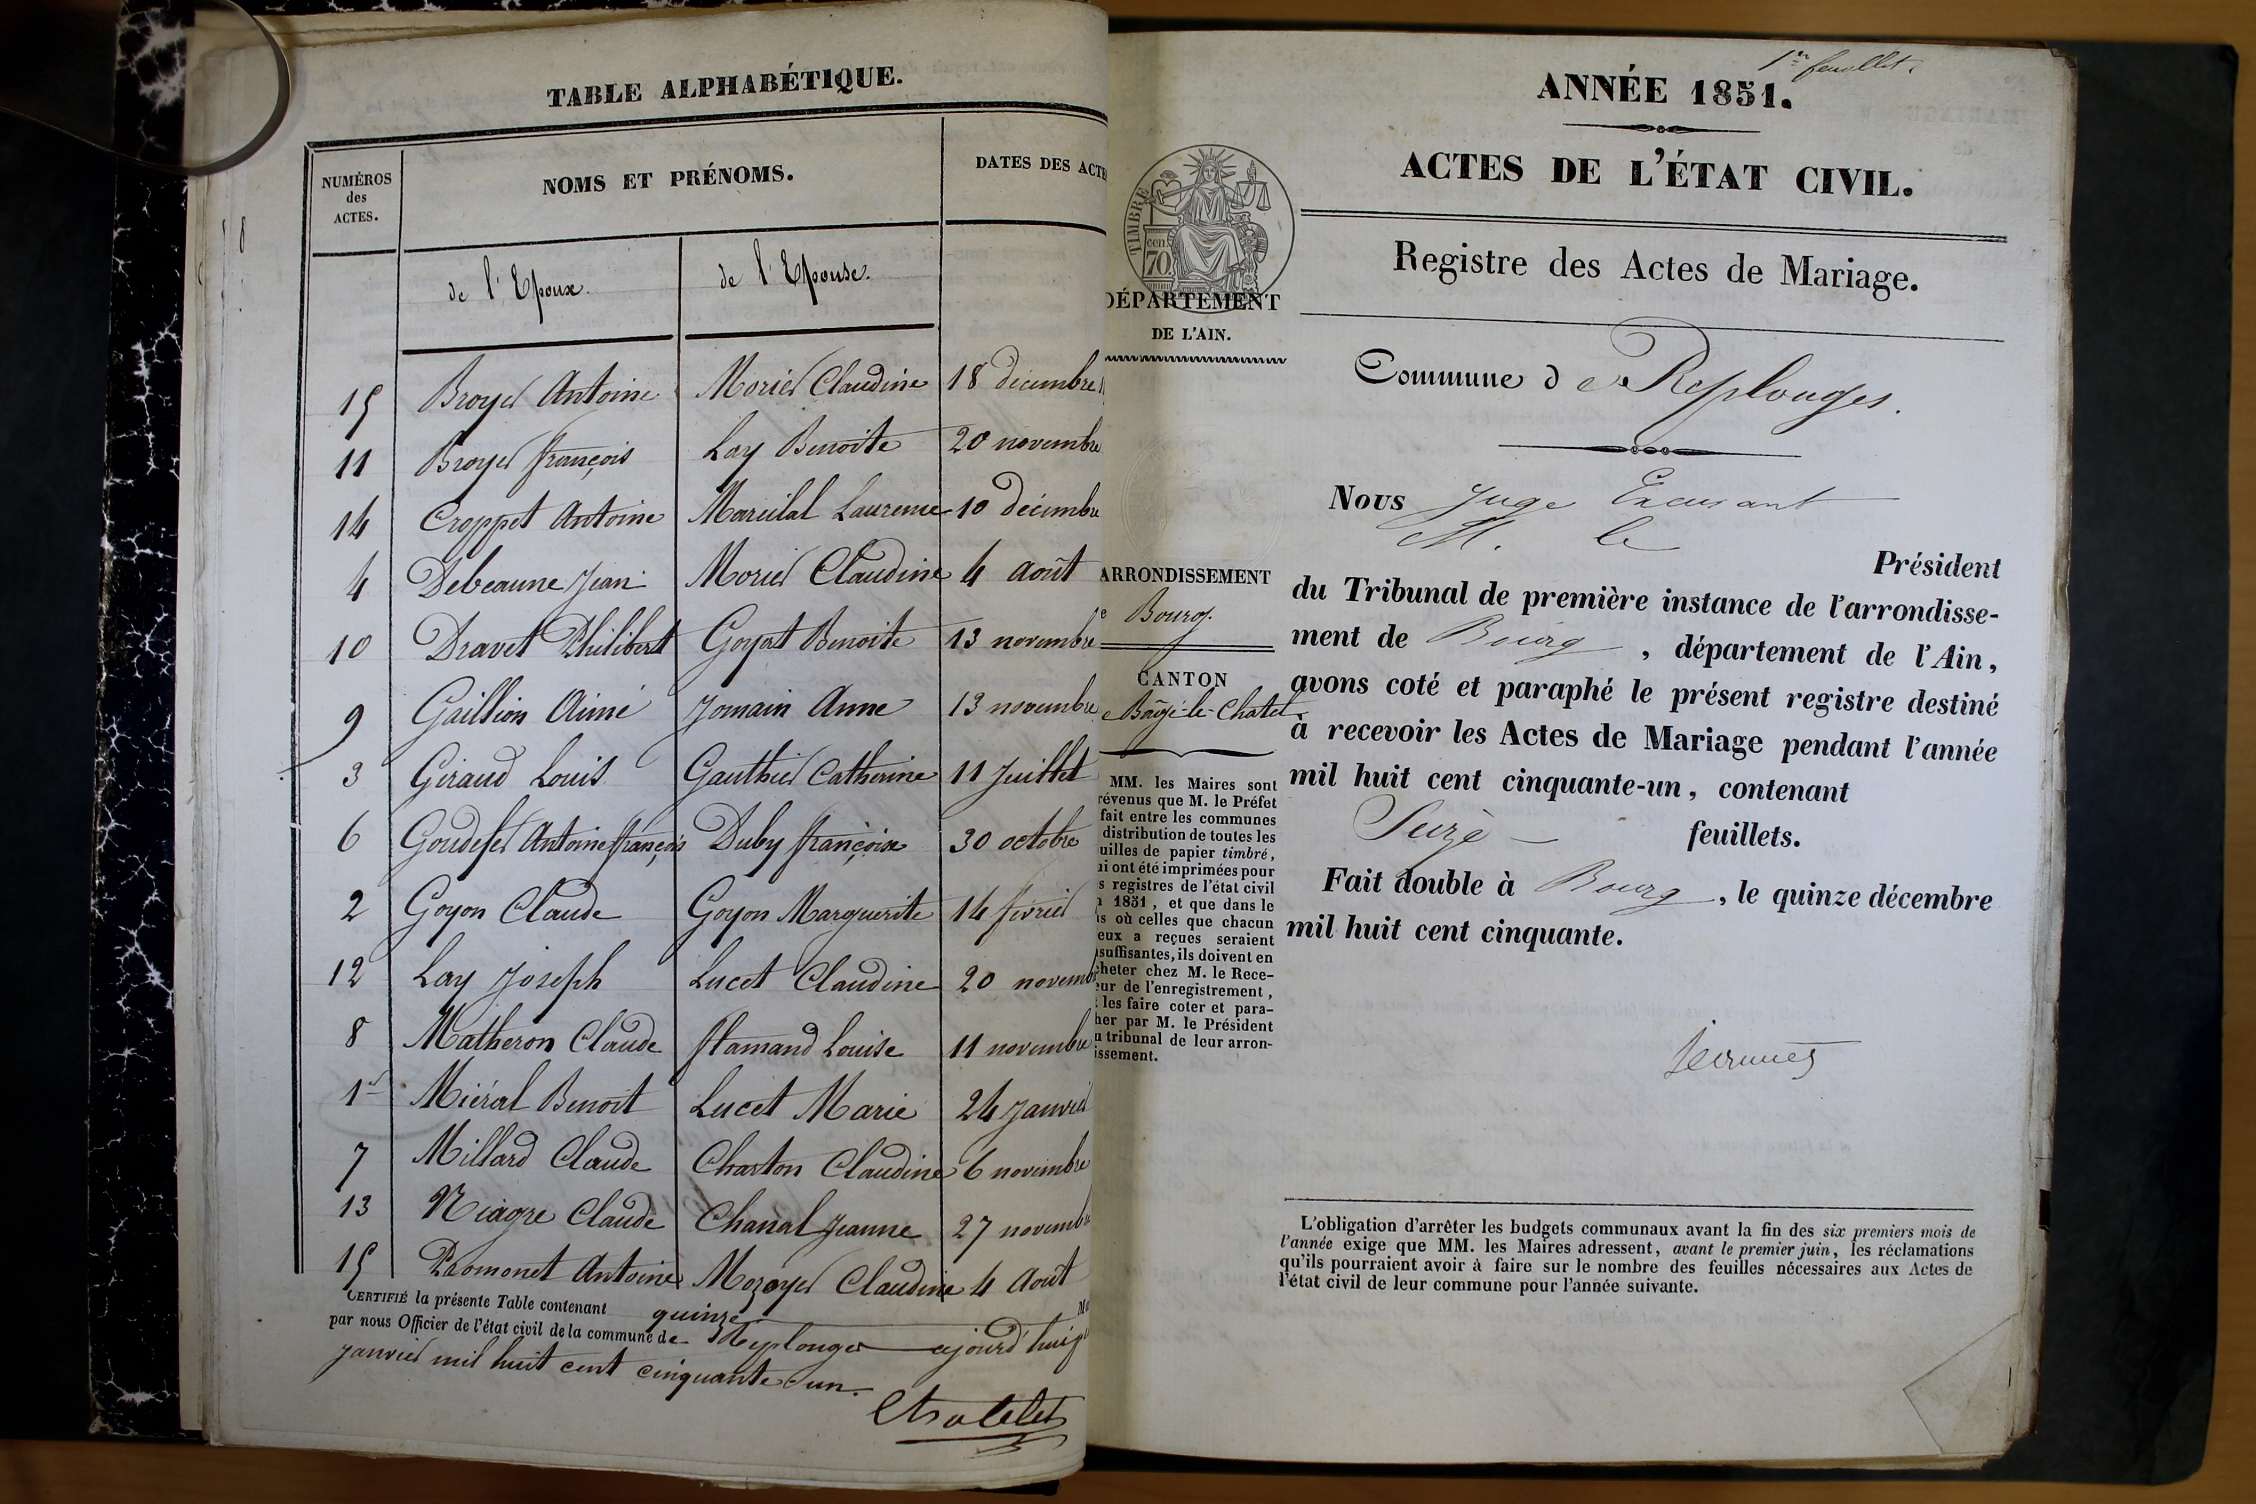 TABLE ALPHABÉTIQUE.
NUMÉROS des ACTES.
NOMS ET PRÉNOMS.
DATES DES ACTE
de l'Epoux.
de l'Epouse.
15 Broyer Antoine Morier Claudine 18 décembre
11 Broyer françois Lay Benoite 20 novembre
14 Croppet Antoine Laurence 10 décembre
4 Debeaune Jean Morier Claudine 4 août
10 Dravet Philibert Goyat Benoite 13 novembre
9 Gaillion Aimé Jomain Anne 13 novembre
3 Giraud Louis Gauthier Catherine 11 Juillet
6 Antoine françois Duby françoise 30 octobre
2 Goyon Claude Goyon Marguerite 14 février
12 Lay Joseph Lucet Claudine 20 novemb
8 Matheron Claude flamand Louise 11 novembre
1er Miéral Benoit Lucet Marie 24 Janvier
7 Millard Claude Charton Claudine 6 novembre
13 Niagre Claude Chanal Jeanne 27 novembre
15 Promonet Antoine Mozoyer Claudine 4 Août
CERTIFIÉ la présente Table contenant quinze
par nous Officier de l'état civil de la commune de Replonges ajourd'hui
janvier mil huit cent cinquante-un.
1er feuillet.
ANNÉE 1851.
ACTES DE L'ÉTAT CIVIL.
Registre des Actes de Mariage.
TIMBRE
cen.
70
DÉPARTEMENT
DE L'AIN.
Commune de Replonges.
ARRONDISSEMENT
e Bourg.
CANTON
e Bâgé-le-Chatel.
MM. les Maires sont
révenus que M. le Préfet
fait entre les communes
distribution de toutes les
uilles de papier timbré,
ui ont été imprimées pour
s registres de l'état civil
1851, et que dans le
as où celles que chacun
eux a reçues seraient
nsuffisantes, ils doivent en
cheter chez M. le Rece-
eur de l'enregistrement,
les faire coter et para-
her par M. le Président
u tribunal de leur arron-
issement.
Nous Juge Excusant
M. le
Président
du Tribunal de première instance de l'arrondisse-
ment de Bourg, département de l'Ain,
avons coté et paraphé le présent registre destiné
à recevoir les Actes de Mariage pendant l'année
mil huit cent cinquante-un, contenant
Seize feuillets.
Fait double à Bourg, le quinze décembre
mil huit cent cinquante.
L'obligation d'arrêter les budgets communaux avant la fin des six premiers mois de
l'année exige que MM. les Maires adressent, avant le premier juin, les réclamations
qu'ils pourraient avoir à faire sur le nombre des feuilles nécessaires aux Actes de
l'état civil de leur commune pour l'année suivante.